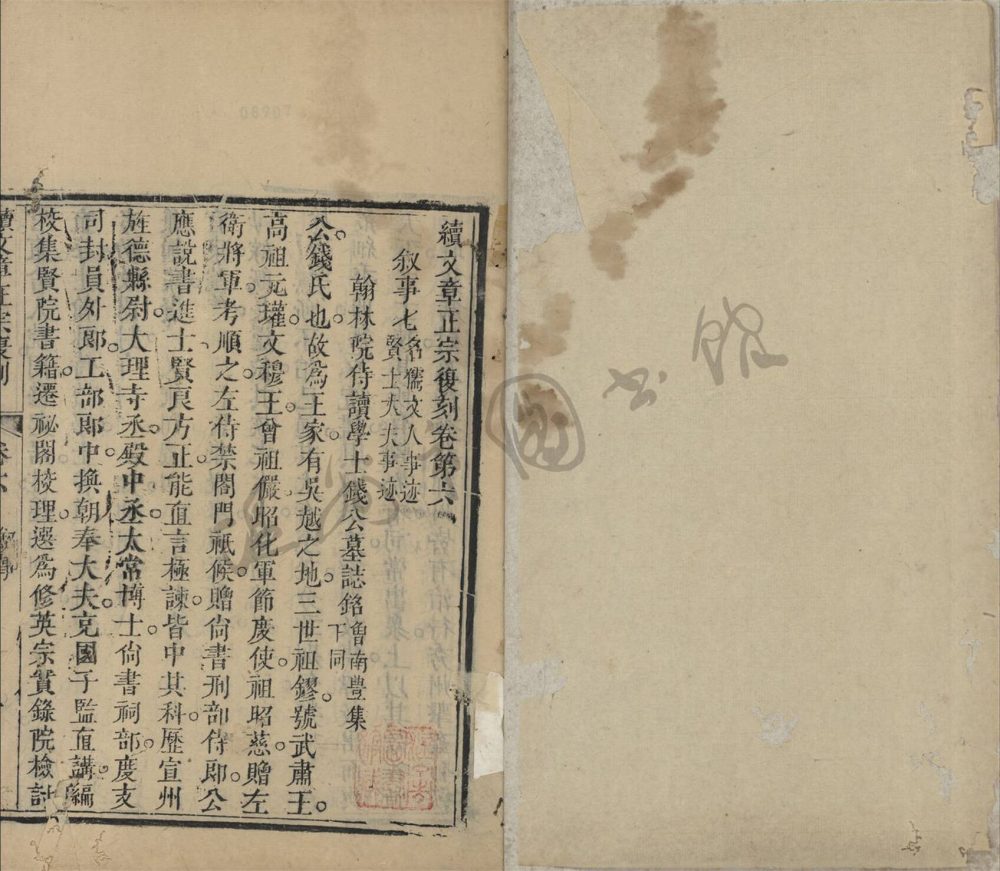 續文章正宗復刻卷第六
叙事七名儒文人事迹
賢士大夫事迹
翰林院侍讀學士錢公墓誌銘曾南豐集
下同
公錢氏也故爲王家有吳越之地三世祖鏐號武肅王
高祖元瓘文穆王曾祖儼昭化軍節度使祖昭慈贈左
衛將軍考順之左侍禁閤門祗候贈尚書刑部侍郎公
應説書進士賢良方正能直言極諫皆中其科歷宣州
旌德縣尉大理寺丞殿中丞太常博士尚書祠部度支
司封員外郎工部郎中換朝奉大夫充國子監直講編
校集賢院書籍遷祕閣校理選爲修英宗實錄院檢討
續文章正宗復刻
卷六